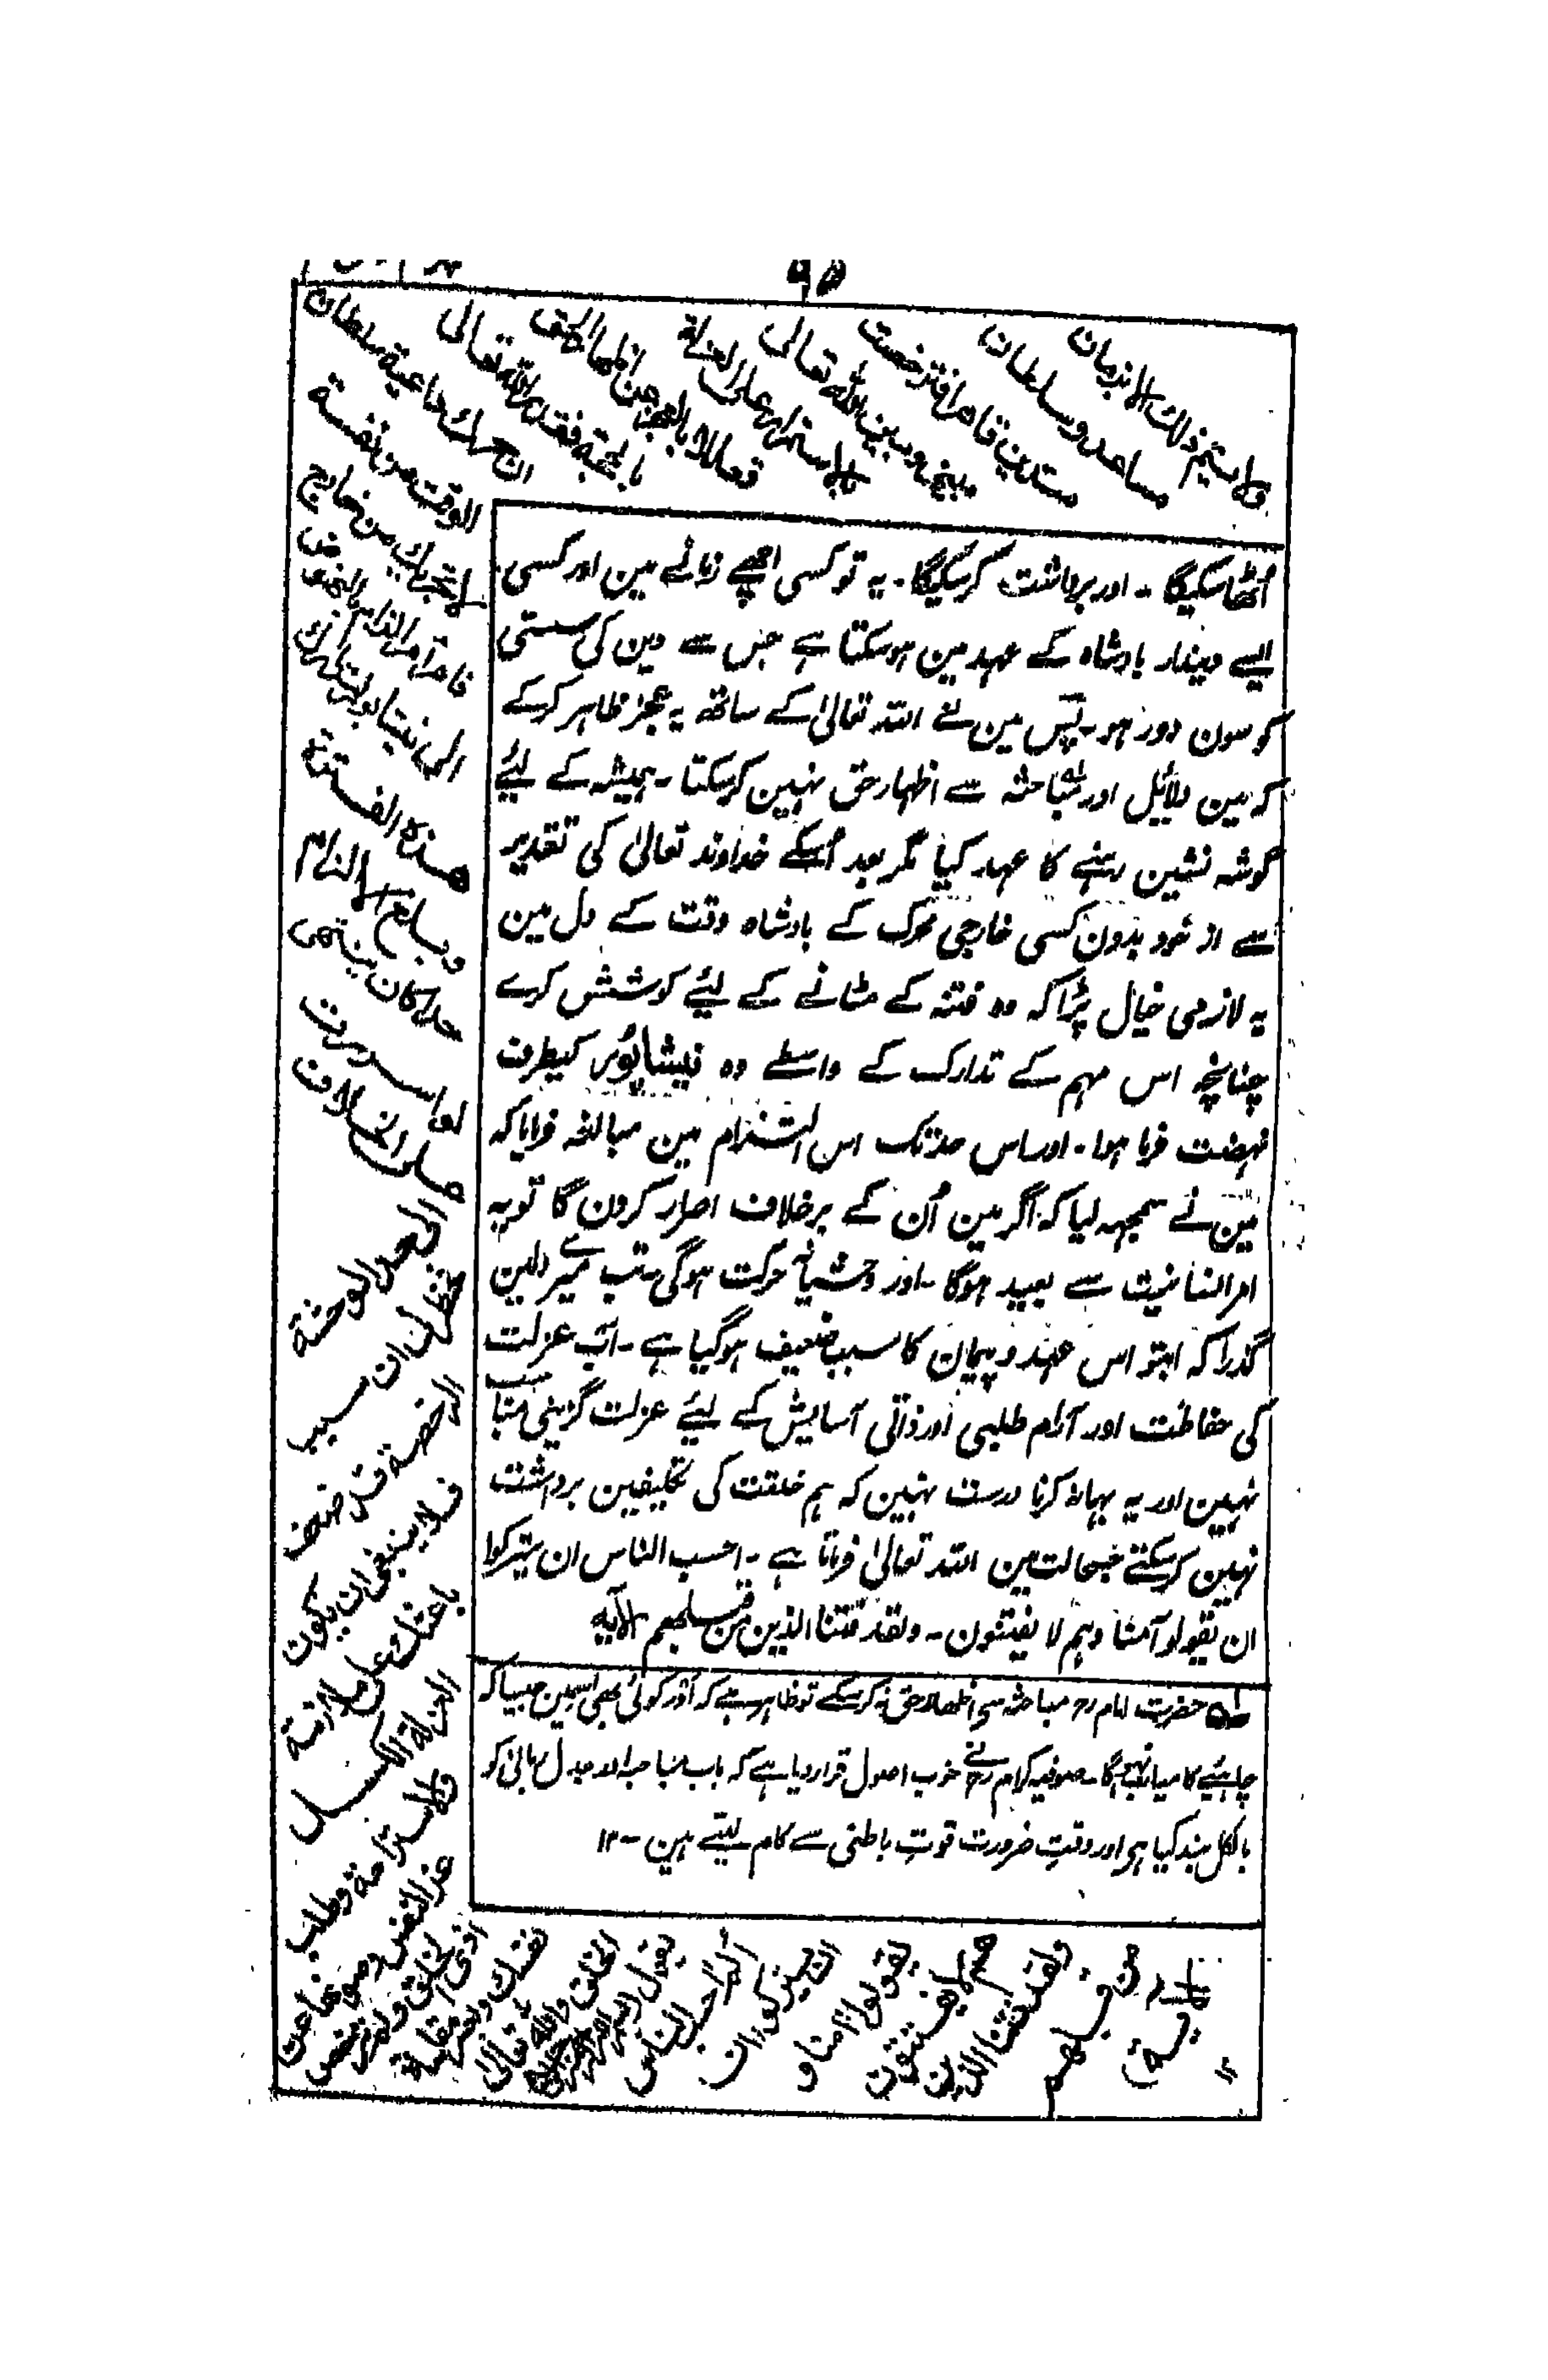 ۹۵
ولا يستتم ذلك الا بزمان
مساعد وسلطان
متدين قاهر فترخصت
بينى وبين الله تعالى
بالاستمرار على العزلة
تعللا بالعجز عن اظهار الحق
بالحجة فقدر الله تعالى
ان حرك داعية سلطان
الوقت من نفسه
لا بتحريك من خارج
فامر امر الزام بالنهوض
الى نيسابور لتدارك
هذه الفترة
وبلغ الالزام
حدا كان ينتهى
لو اصررت
على الخلاف
الى حد الوحشة
فخطر لى ان سبب
الرخصة قد ضعف
فلا ينبغى ان يكون
باعثك على ملازمة
العزلة الكسل
والاستراحة وطلب
عز النفس وصونها عن
اذى الخلق ولم ترخص
نفسك بعسر مقاساة
الخلق والله تعالى
يقول
الم احسب الناس
ان يتركوا ان
يقولوا آمنا و
هم لا يفتنون
ولقد فتنا الذين
من قبلهم
الآية
اُٹھا سکیگا ۔ اور برداشت کرسکیگا ۔ یہ تو کسی اچھے زمانے مین اور کسی
ایسے دیندار بادشاہ کے عہد مین ہوسکتا ہے جس سے دین کی سستی
کوسون دور ہو ۔ پس مین نے اللہ تعالیٰ کے ساتھ یہ عجز ظاہر کرکے
کہ مین دلائیل اور مباحثہ سے اظہار حق نہین کرسکتا ۔ ہمیشہ کے لیئے
گوشہ نشین رہنے کا عہد کیا مگر بعد اُسکے خداوند تعالیٰ کی تقدیر
سے از خود بدون کسی خارجی محرک کے بادشاہ وقت کے دل مین
یہ لازمی خیال پڑا کہ وہ فتنہ کے مٹانے کے لیئے کوشش کرے
چنانچہ اس مہم کے تدارک کے واسطے وہ نیشاپور کیطرف
نہضت فرما ہوا ۔ اور اس حد تک اس التزام مین مبالغہ فرمایا کہ
مین نے سمجہہ لیا کہ اگر مین اُن کے برخلاف اصرار کرون گا تو یہ
امر انسانیت سے بعید ہوگا ۔ اور وحشیانہ حرکت ہوگی ۔ تب میرے دلمین
گذرا کہ ابتو اس عہد و پیمان کا سبب ضعیف ہوگیا ہے ۔ اب عزلت
کی حفاظت اور آرام طلبی اور ذاتی آسایش کے لیئے عزلت گزینی مناسب
نہین اور یہ بہانہ کرنا درست نہین کہ ہم خلقت کی تکلیفین برداشت
نہین کرسکتے جسحالت مین اللہ تعالیٰ فرماتا ہے ۔ احسب الناس ان یترکوا
ان یقولو آمنا وہم لا یفتنون ۔ ولقد فتنا الذین من قبلہم الآیہ
لہ حضرت امام رح مباحثہ سے اظہار حق نہ کرسکے تو ظاہر ہے کہ اور کوئی بھی اسمین جیسا کہ
چاہیئے کامیاب نہوگا ۔ صوفیہ کرام رح نے خوب اصول قرار دیا ہے کہ باب مباحثہ اور جدل زبانی کو
بالکل بند کیا ہے اور وقتِ ضرورت قوتِ باطنی سے کام لیتے ہین ۔ ۱۲